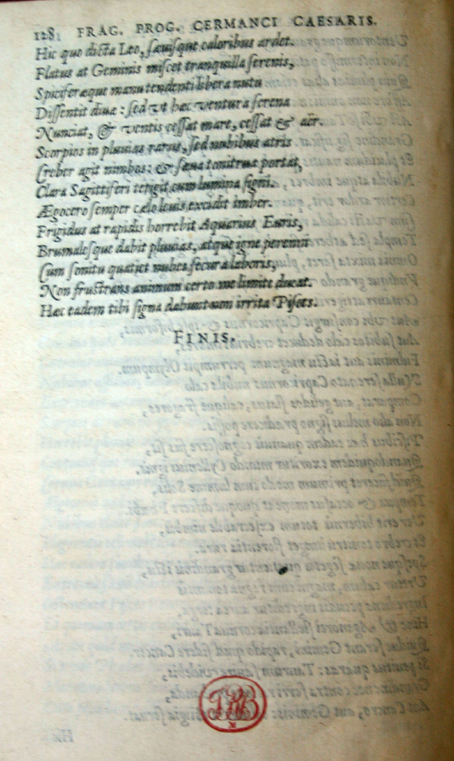 1281 FRAG. PROG. GERMANCI CAESARIS.
Hic quo dicta Leo, sæuisque caloribus ardet.
Flatus at Geminis miscet tranquilla serenis,
Spiciferæque manu tendenti libera nutu
Dissentit diuæ: sed vt hæc ventura serena
Nunciat, & ventis cessat mare, cessat & aër.
Scorpios in pluuias rarus, sed nubibus atris
Creber agit nimbos: & sæua tonitrua portat,
Clara Sagittiferi tetigit cum lumina signi.
Ægocero semper cælo leuis excidit imber.
Frigidus at rapidis horrebit Aquarius Euris,
Brumalesque dabit pluuias, atque igne perenni
Cum sonitu quatiet nubes secura laboris,
Non frustrans animum certo me limite ducat.
Hæc eadem tibi signa dabunt non irrita Pisces.
FINIS.